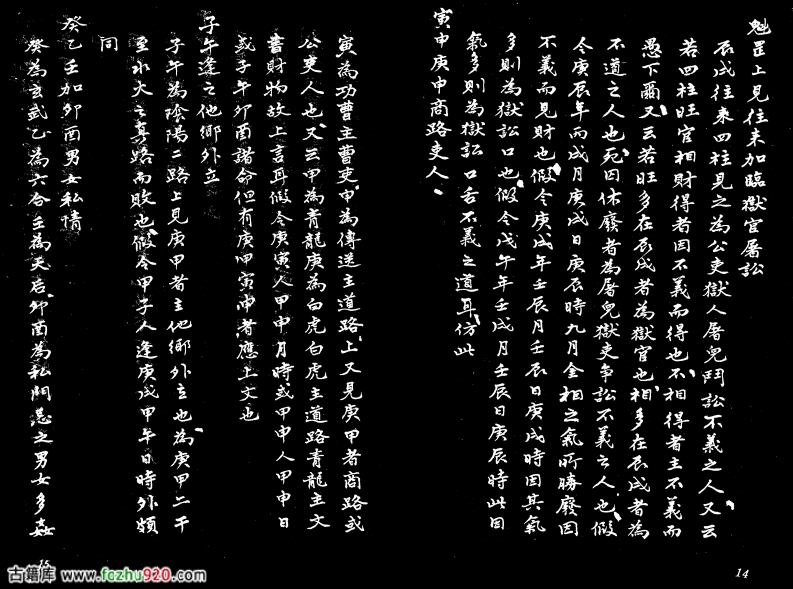 魁罡上見往來加臨獄官屠訟
辰戌往來四柱見之為公吏獄人屠兒鬥訟不義之人又云
若四柱旺官相財得者因不義而得也不相得者主不義而
愚下爾又云若旺多在辰戌者為獄官也相多在辰戌者為
不道之人也死囚休廢者為屠兒獄吏爭訟不義之人也假
令庚辰年丙戌月庚戌日庚辰時九月金相之氣所勝廢因
不義而見財也假令庚戌年壬辰月壬辰日庚戌時因其氣
多則為獄訟口也假令戊午年壬戌月壬辰日庚辰時此因
氣多則為獄訟口舌不義之道耳仿此
寅申庚甲商路吏人
寅為功曹主曹吏申為傳送主道路上又見庚甲者商路或
公吏人也又云甲為青龍庚為白虎白虎主道路青龍主文
書財物故上言耳假令庚寅人甲申月時或甲申人甲申日
或子午卯酉諸命但有庚甲寅申者應上文也
子午逢之他鄉外立
子午為陰陽二路上見庚甲者主他鄉外立也為庚甲二干
至水火之真路而敗也假令甲子人逢庚戌甲午日時外頗
同
癸乙壬加卯酉男女私情
癸為玄武乙為六合壬為天后卯酉為私門忌之男女多姦
14
15
古籍库 www.fozhu920.com